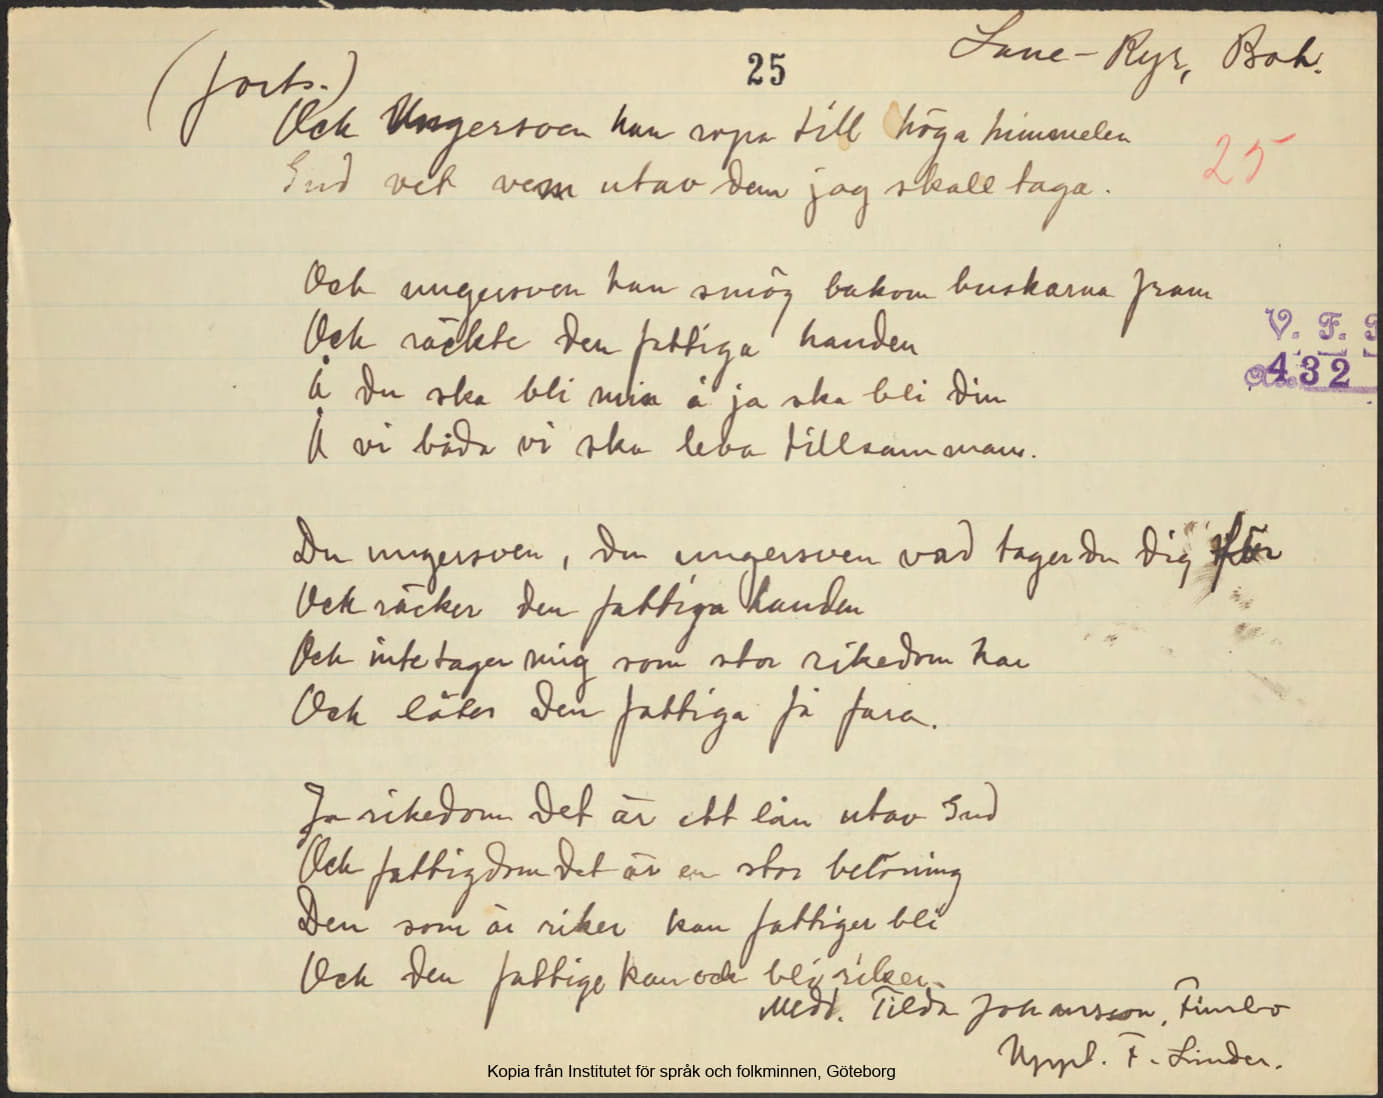 (forts.)
25
Lane-Ryr, Boh.
Och Ungersven han ropa till höga himmelen
25
Gud vet vem utav dem jag skall taga.
Och ungersven han smög bakom buskarna fram
Och räckte den fattiga handen
V. F. F
432
Å du ska bli min å ja ska bli din
Å vi båda vi ska leva tillsammans.
Du ungersven, du ungersven vad tager du dig för
Och räcker den fattiga handen
Och inte tager mig som stor rikedom har
Och låter den fattiga få fara.
Ja rikedom det är ett lån utav Gud
Och fattigdom det är en stor belöning
Den som är riker kan fattiger bli
Och den fattige kan och bli riker.
Medd. Tilda Johansson, Fimbo
Uppt. F. Linder.
Kopia från Institutet för språk och folkminnen, Göteborg